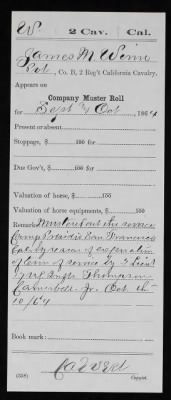 W | 2 Cav. | Cal.
James M. Winn
Pvt., Co. B, 2 Reg't California Cavalry.
Appears on
Company Muster Roll
for Sept & Oct, 1864
Present or absent
Stoppage, $ 100 for
Due Gov't, $ 100 for
Valuation of horse, $ 100
Valuation of horse equipments, $ 100
Remarks: Mustered out the service
Camp Presidio San Francisco
Cal. by reason of expiration
of term of service by 1 Lieut
Thompson
Campbell Jr. Oct.
10/64
Book mark:
(358) Copyist.